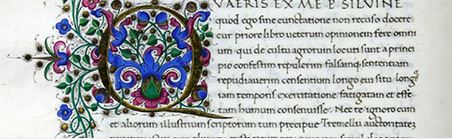 QVAERIS EX ME P. SILVINE
quod ego sine cunctatione non recuso docere
cur priore libro ueterum opinionem fere omni
um qui de cultu agrorum locuti sunt a princi
pio confestim repulerim falsamque sententiam
repudiauerim censentium longo eui situ longi
tam temporis exercitatione fatigatam et effe
tam humum consenuisse. Nec te ignoro cum
et aliorum illustrium scriptorum tum precipue Tremelli auctoritatez